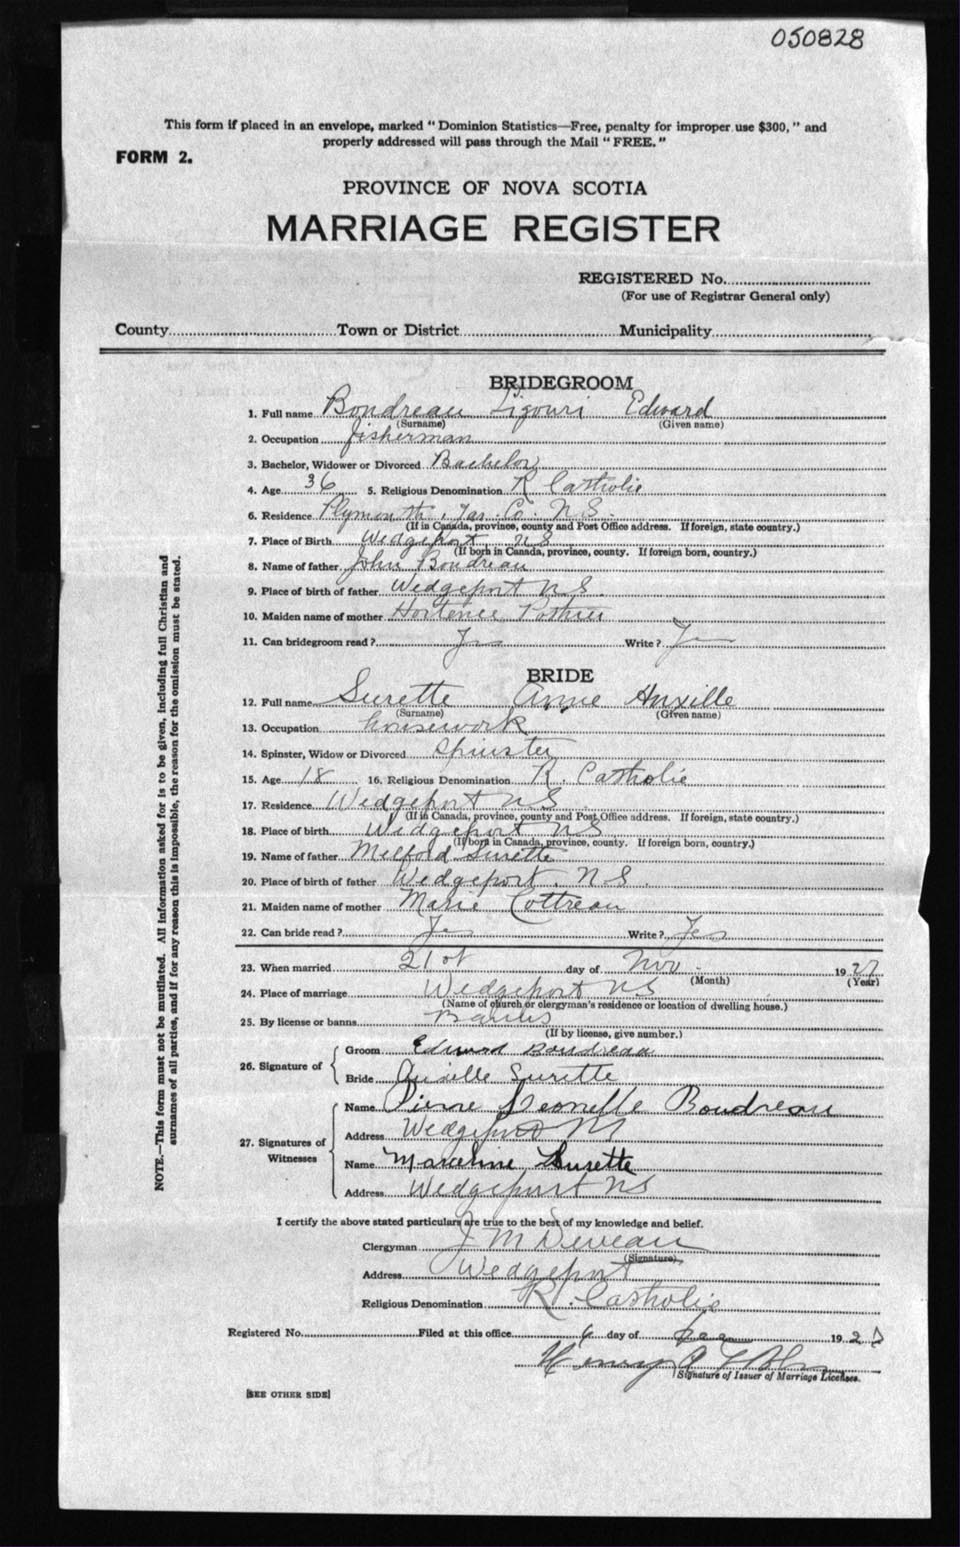 050828
This form if placed in an envelope, marked "Dominion Statistics—Free, penalty for improper use $300," and
properly addressed will pass through the Mail "FREE."
FORM 2.
PROVINCE OF NOVA SCOTIA
MARRIAGE REGISTER
REGISTERED No.
(For use of Registrar General only)
County Town or District Municipality
BRIDEGROOM
1. Full name Boudreau Ligouri Edward
(Surname) (Given name)
2. Occupation fisherman
3. Bachelor, Widower or Divorced Bachelor
4. Age 36 5. Religious Denomination R Catholic
6. Residence Plymouth, Yar. Co. N.S.
(If in Canada, province, county and Post Office address. If foreign, state country.)
7. Place of Birth Wedgeport NS
(If born in Canada, province, county. If foreign born, country.)
8. Name of father John Boudreau
9. Place of birth of father Wedgeport N.S.
10. Maiden name of mother Hortence Pothier
11. Can bridegroom read? Yes Write? Yes
BRIDE
12. Full name Surette Annie Auxille
(Surname) (Given name)
13. Occupation housework
14. Spinster, Widow or Divorced Spinster
15. Age 18 16. Religious Denomination R. Catholic
17. Residence Wedgeport NS
(If in Canada, province, county and Post Office address. If foreign, state country.)
18. Place of birth Wedgeport NS
(If born in Canada, province, county. If foreign born, country.)
19. Name of father Melford Surette
20. Place of birth of father Wedgeport, N.S.
21. Maiden name of mother Marie Cottreau
22. Can bride read? Yes Write? Yes
23. When married 21st day of Nov. 1927
(Month) (Year)
24. Place of marriage Wedgeport NS
(Name of church or clergyman's residence or location of dwelling house.)
25. By license or banns Banns
(If by license, give number.)
26. Signature of
Groom Edward Boudreau
Bride Auxille Surette
27. Signatures of Witnesses
Name Pierre Boudreau
Address Wedgeport NS
Name Marceline Surette
Address Wedgeport NS
I certify the above stated particulars are true to the best of my knowledge and belief.
Clergyman J M Deveau
(Signature)
Address Wedgeport
Religious Denomination R. Catholic
Registered No. Filed at this office 6 day of Dec 192
Henry A
Signature of Issuer of Marriage Licenses.
[SEE OTHER SIDE]
NOTE.—This form must not be mutilated. All information asked for is to be given, including full Christian and
surnames of all parties, and if for any reason this is impossible, the reason for the omission must be stated.